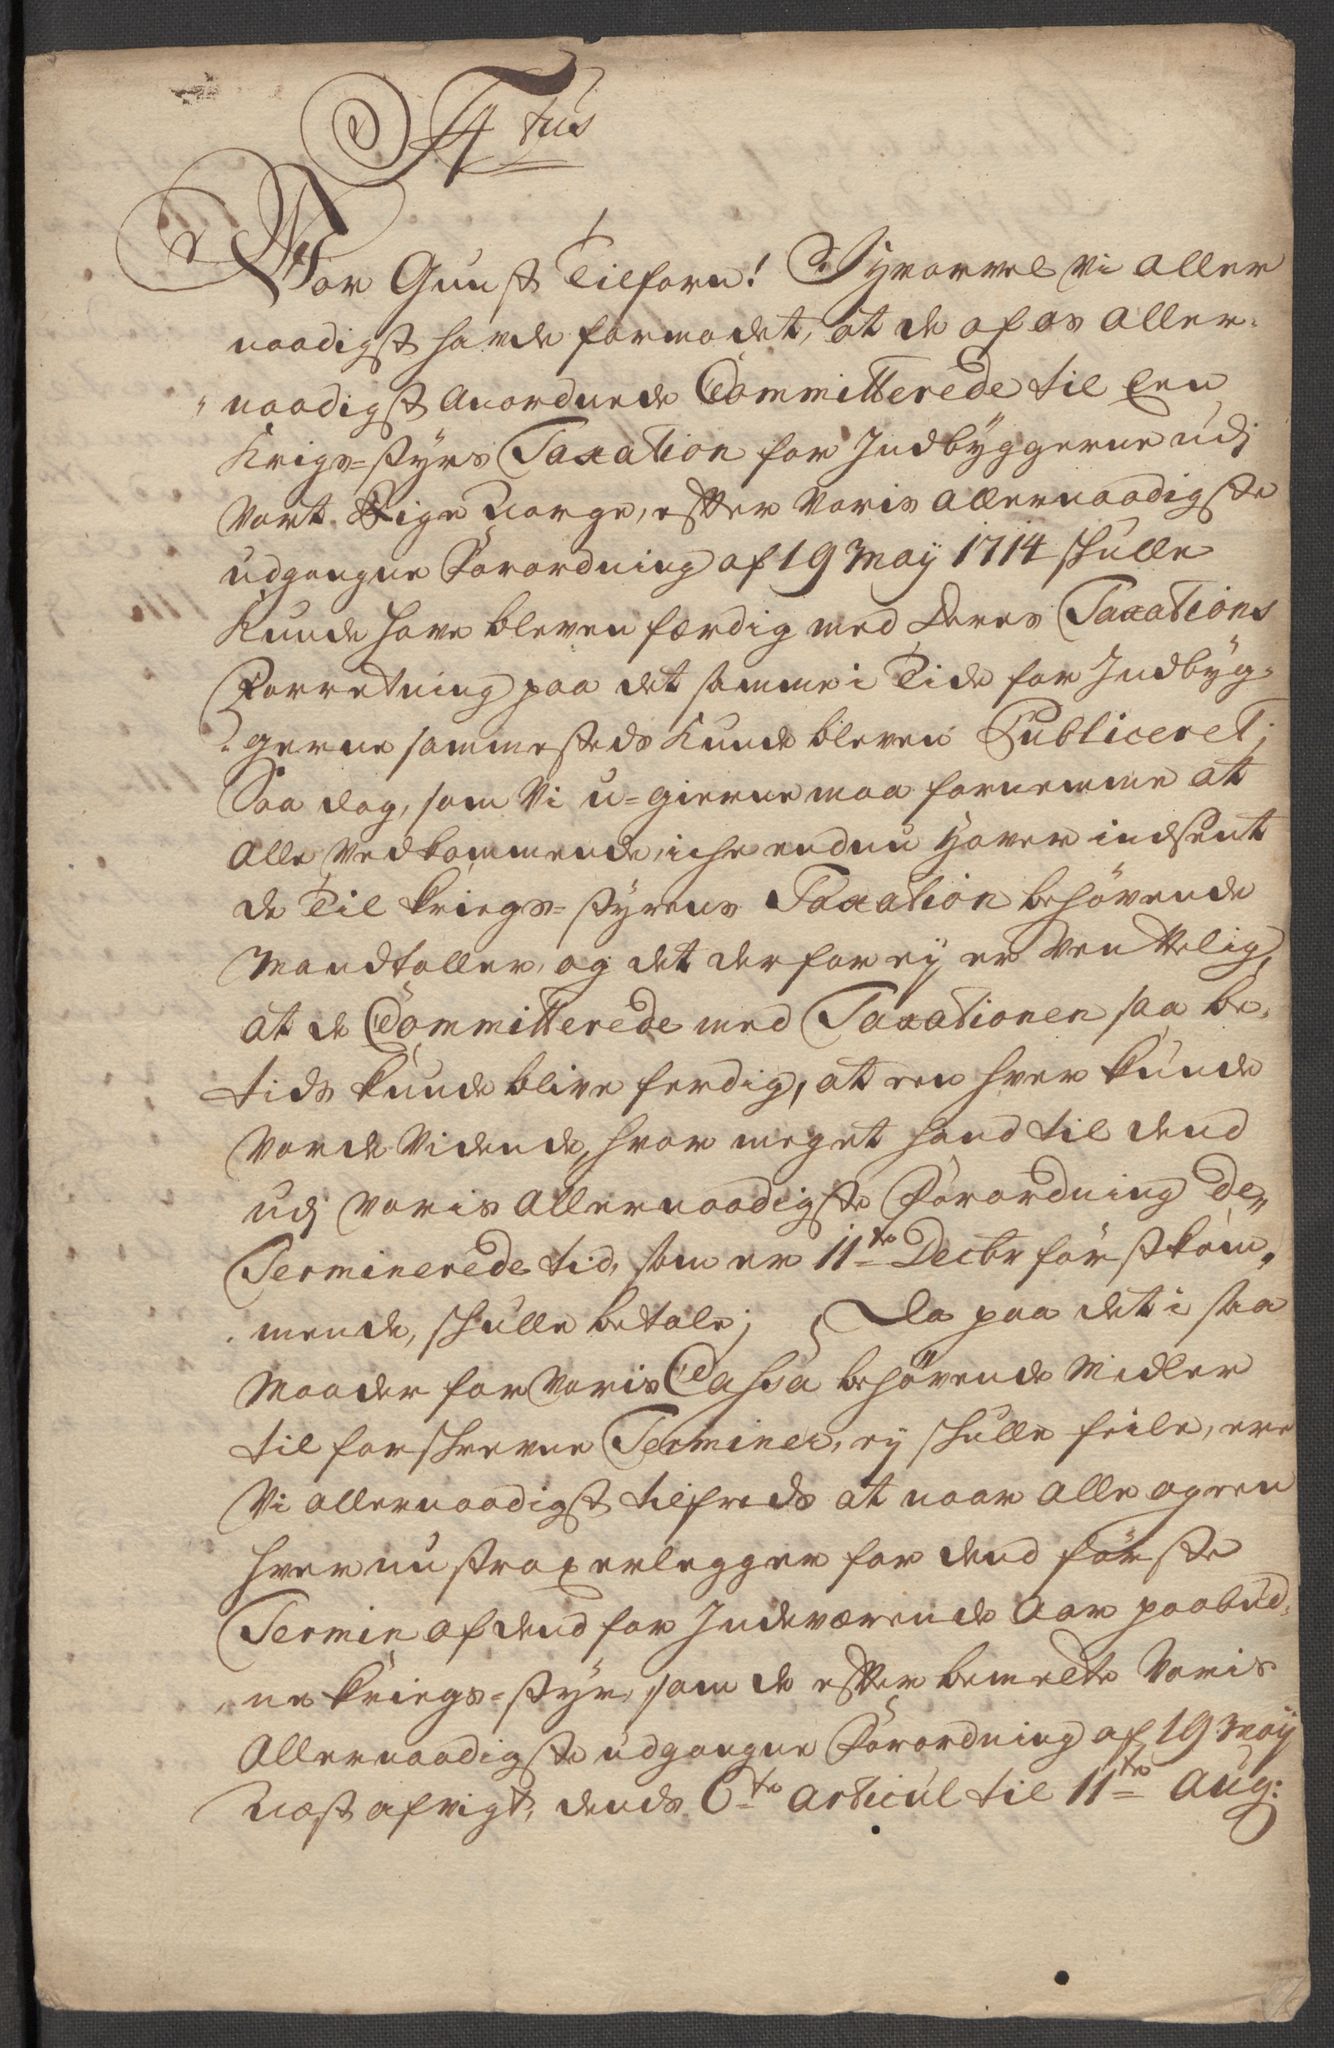 F4tus
Vor Gunst Tilforn! Hvorvel Vi aller
naadigst hafde formodet, at de af os aller-
naadigst anordnede Committerede til Een
Krigs=styrs Taxation for Indbyggerne udj
Vort Rige Norge, efter Voris allernaadigste
udgangne Forordning af 19 Maij 1714 skulle
Kunde have bleven færdig med deres Taxations
Forretning paa det samme i Tide for Indbyg-
gerne sammesteds Kunde bleven Publiceret;
Saa dog, som Vi u=gierne maa fornemme at
alle Vedkommende, iche endnu haver indsent
de Til Kriegs=styrens Taxation behövende
Mandtaller, og det derfor ey er Venttelig,
at de Committerede med Taxationen saa be-
tids Kunde blive ferdig, at een hver Kunde
Vorde Vidende, hvor meget hand til dend
udj Voris Allernaadigste Forordning de-
Terminerede tid, som er 11te Decbr förstkom-
mende, skulle betale; Da paa det i saa
Maader for Voris Cassa behövende Midler
til forskrevne Terminer, ey skulle feile, ere
Vi allernaadigst tilfreds at naar alle og een
hver nu strax erlegger for dend förste
Termin af dend for Indeværende Aar paabud-
ne Kriegs=styr, som de efter bemelte Voris
Allernaadigste udgangne Forordning af 19 Maij
Næst afvigt, dends 6te Articul til 11te Aug: